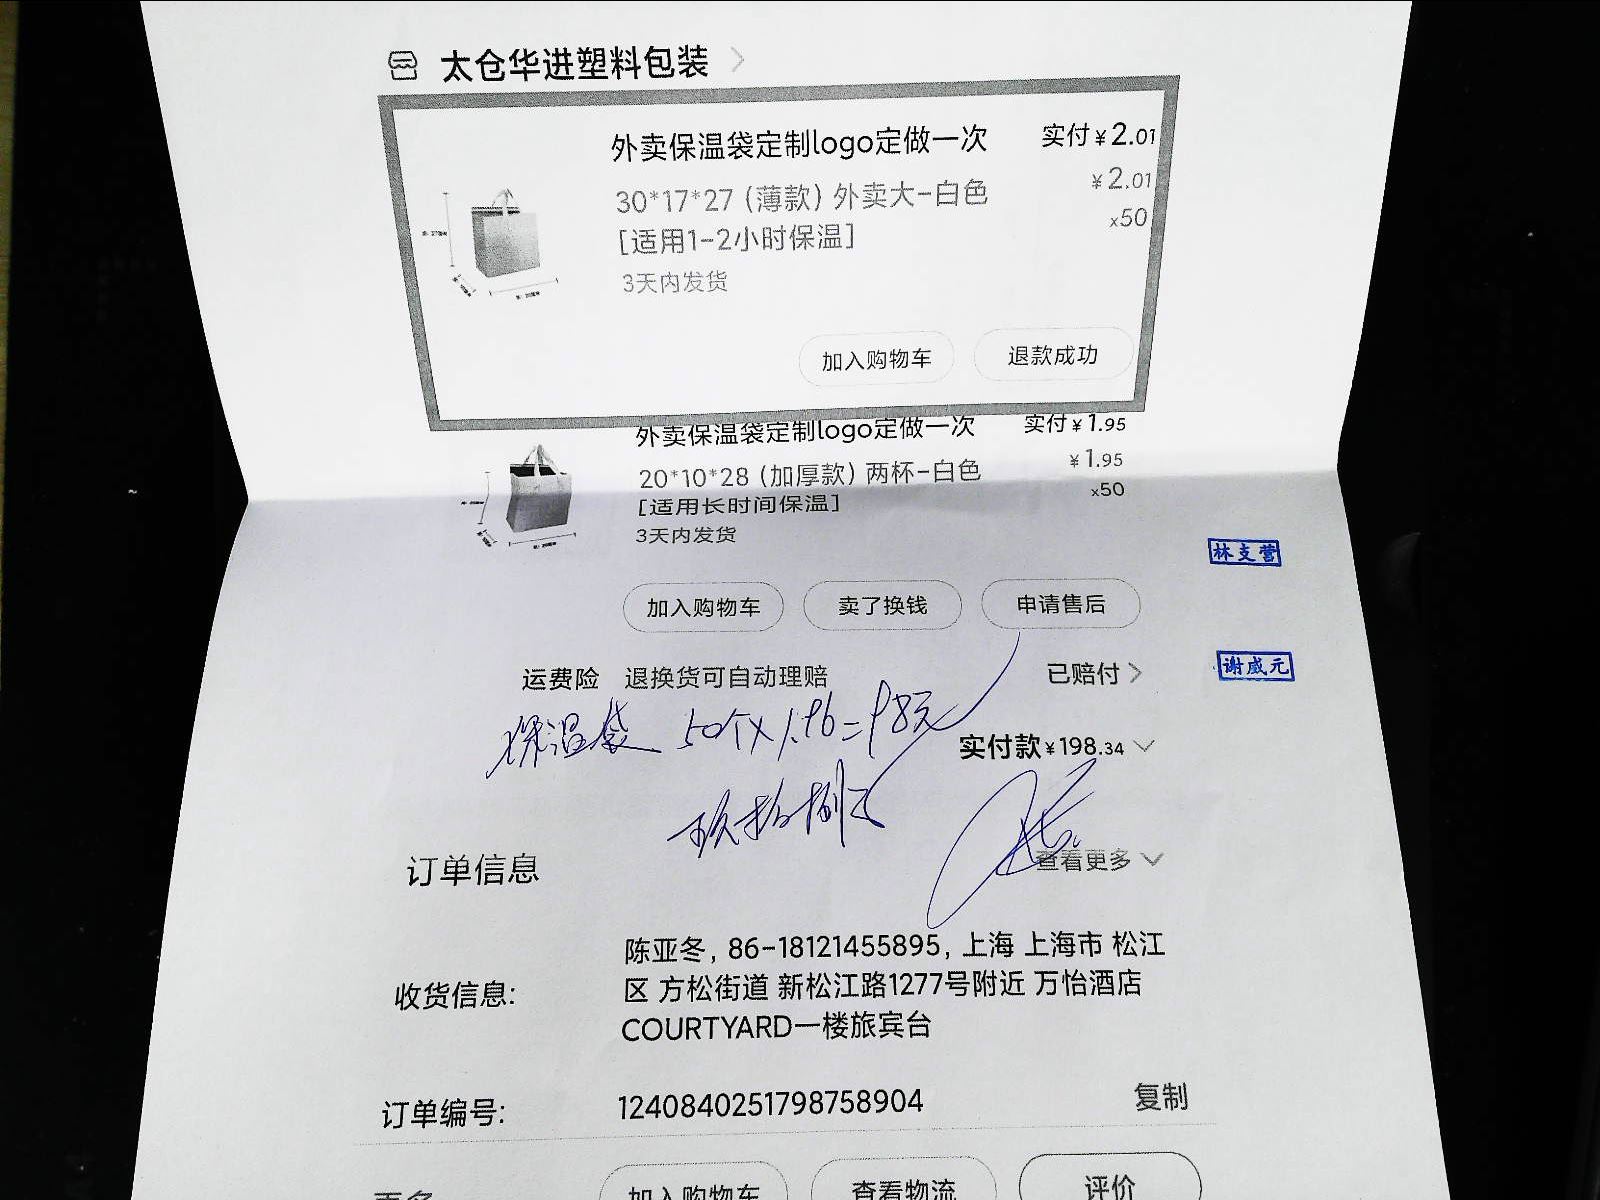 太仓华进塑料包装
外卖保温袋定制logo定做一次 实付¥2.01
30*17*27（薄款）外卖大-白色 ¥2.01
[适用1-2小时保温] x50
3天内发货
加入购物车 退款成功
外卖保温袋定制logo定做一次 实付¥1.95
20*10*28（加厚款）两杯-白色 ¥1.95
[适用长时间保温] x50
3天内发货
林支营
加入购物车 卖了换钱 申请售后
运费险 退换货可自动理赔 已赔付
谢威元
保温袋 50个×1.96=98元
实付款¥198.34
玖拾捌元
订单信息 查看更多
收货信息: 陈亚冬, 86-18121455895, 上海 上海市 松江
区 方松街道 新松江路1277号附近 万怡酒店
COURTYARD一楼旅宾台
订单编号: 1240840251798758904 复制
更多 加入购物车 查看物流 评价